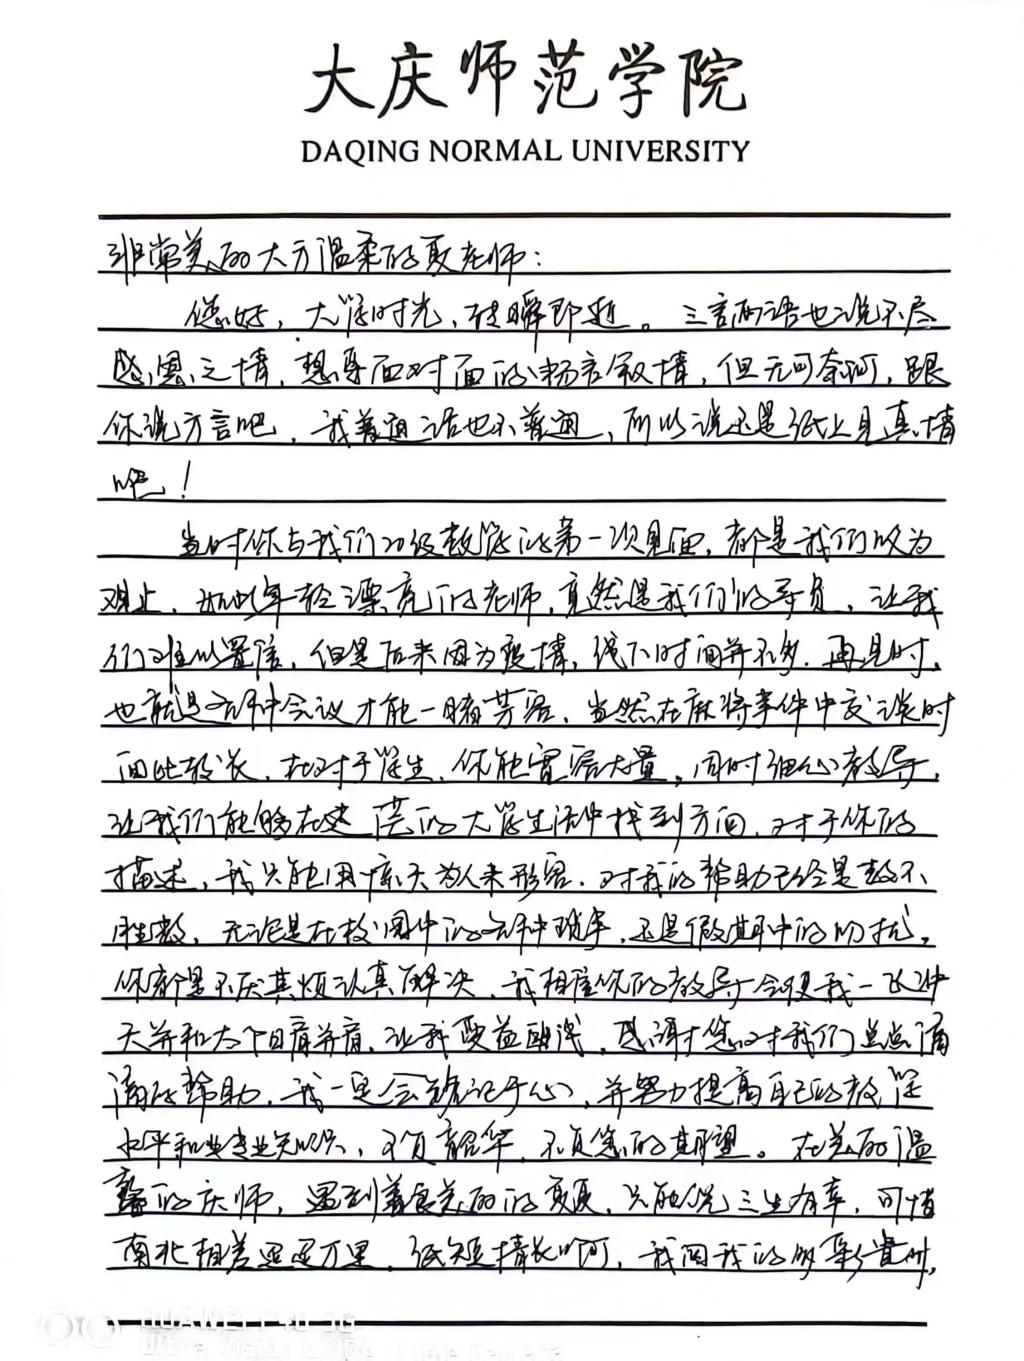 大庆师范学院
DAQING NORMAL UNIVERSITY
非常美丽大方温柔的夏老师：
您好，大学时光，转瞬即逝。三言两语也说不尽
感恩之情，想要面对面的畅言叙情，但无可奈何，跟
你说方言吧，我普通话也不普通，所以说还是纸上见真情
吧！
当时你与我们20级数学的第一次见面，都是我们叹为
观止，如此年轻漂亮的老师，竟然是我们的导员，让我
们难以置信，但是后来因为疫情，线下时间并不多，再见时，
也就是各种会议才能一睹芳容，当然在麻将事件中交谈时
间比较长，在对于学生，你能宽容大量，同时细心教导，
让我们能够在迷茫的大学生活中找到方向，对于你的
描述，我只能用惊天为人来形容，对我的帮助已经是数不
胜数，无论是在校园中的各种琐事，还是假期中的叨扰，
你都是不厌其烦认真解决，我相信你的教导会使我一飞冲
天并和太个日肩并肩，让我受益匪浅，感谢您对我们点点滴
滴的帮助，我一定会铭记于心，并努力提高自己的教学
水平和业专业知识，不负韶华，不负您的期望。在美丽温
馨的庆师，遇到善良美丽的夏夏，只能说三生有幸，可惜
南北相差遥遥万里，纸短情长啊，我问我的